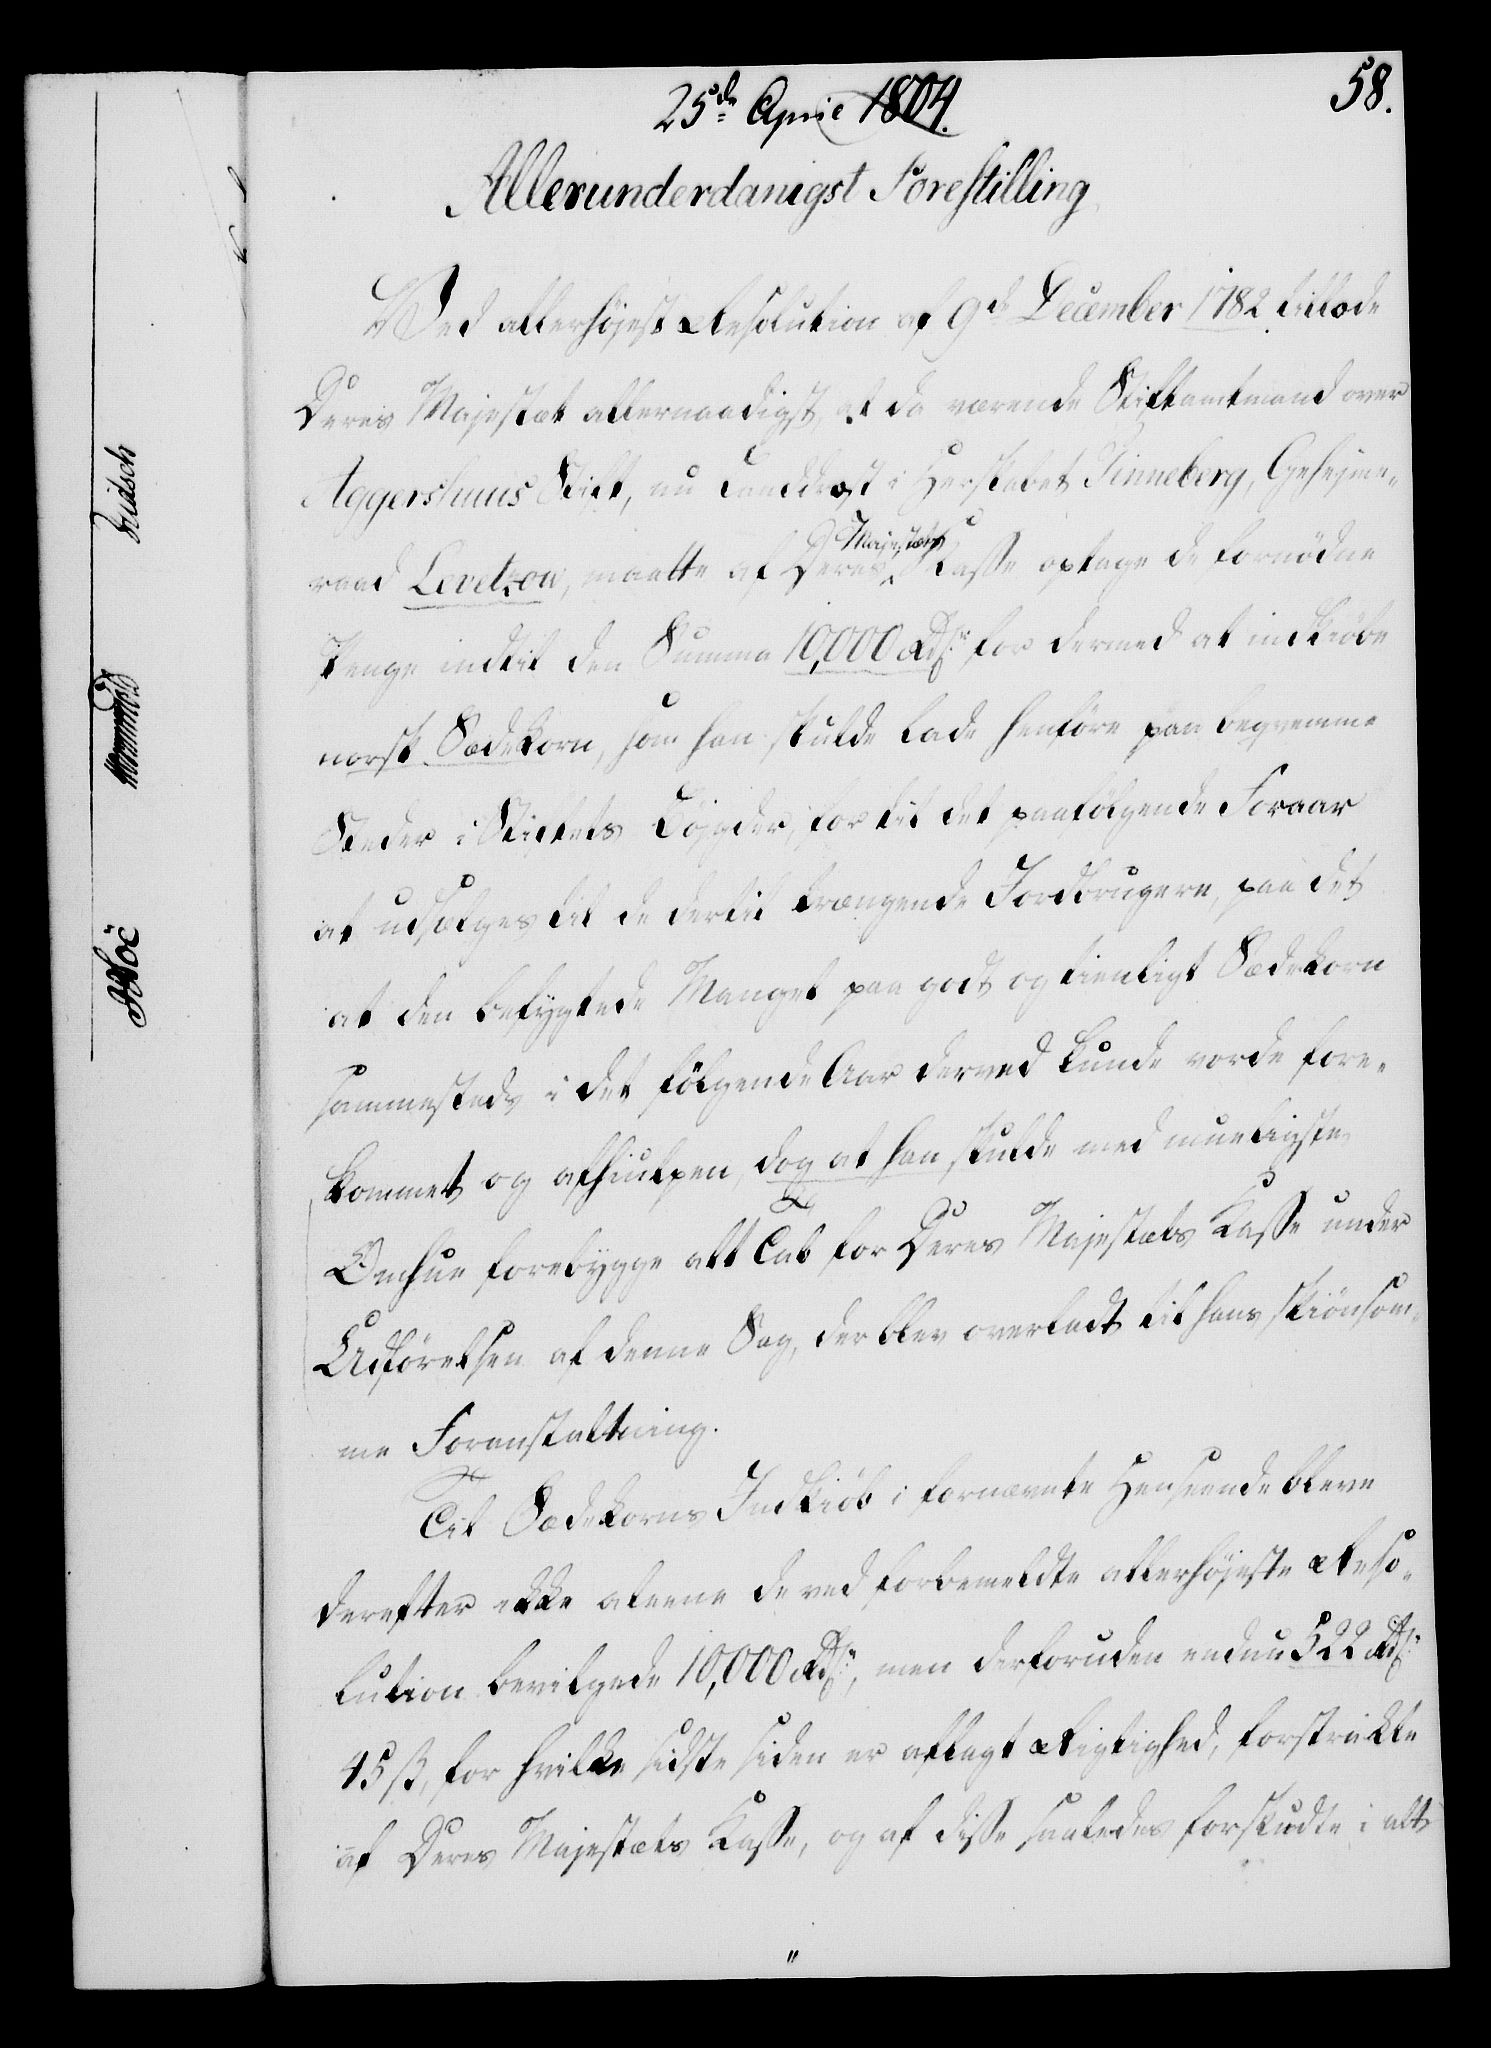 58.
25de April 1804.
Allerunderdanigst Forestilling
Ved allerhøjest Resolution af 9de December 1782 tillode
Deres Majestæt allernaadigst, at da værende Stiftamtmand over
Aggershuus Stift, nu Landdrost i Herskabet Pinneberg, Geheime-
raad Levetzow, maatte af Deres Majestæts Kasse optage de fornødne
Penge indtil den Summa 10,000 Rdlr for dermed at indkiøbe
norsk Sædekorn, som han skulde lade henføre paa beqvemme
Steder i Stiftets Bøjgder, for til det paafølgende Foraar
at udsælges til de dertil trængende Jordbrugere, paa det
at den befrygtede Mangel paa godt og tienligt Sædekorn
sammesteds i det følgende Aar derved kunde vorde fore-
kommet og afhiulpen, dog at han skulde med mueligste
Omhue forebygge alt Tab for Deres Majestæts Kasse under
Udførelsen af denne Sag, der blev overladt til hans skiønsom-
me Foranstaltning.
Til Sædekorns Indkiøb i fornævnte Henseende bleve
derefter ikke alene de ved forbemeldte allerhøjeste Reso-
lution bevilgede 10,000 Rdlr, men derforuden endnu 522 Rdlr
45 ß, for hvilke sidste siden er aflagt Rigtighed, forstrakte
af Deres Majestæts Kasse, og af disse saaledes forskudte i alt
"